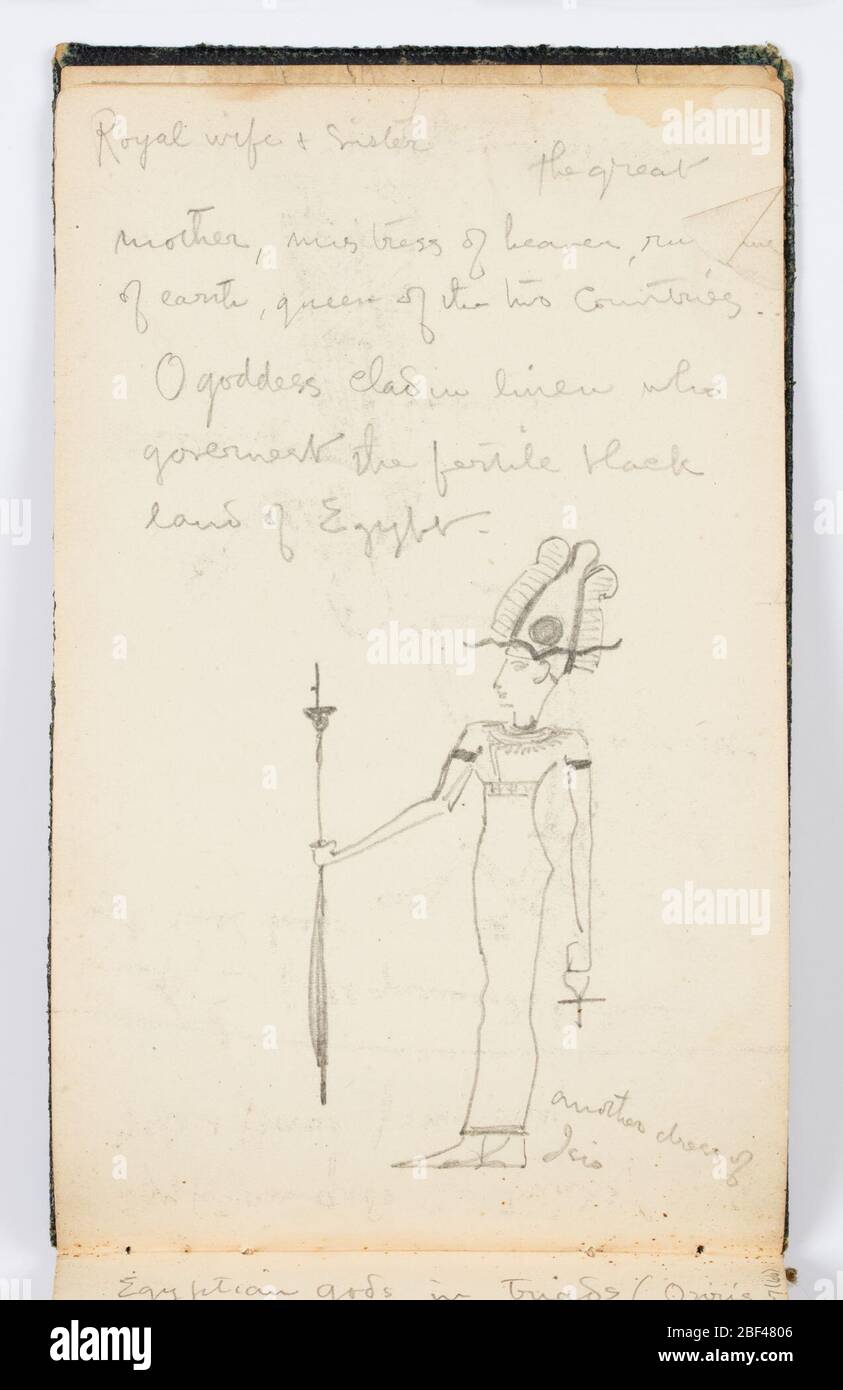 Royal wife + Sister
the great
mother, mistress of heaven,
of earth, queen of the two Countries..
O goddess clad in linen who
governest the fertile black
land of Egypt.
another dress of
Isis
Egyptian gods in triads (Osiris
alamy
Image ID: 2BF4806
www.alamy.com